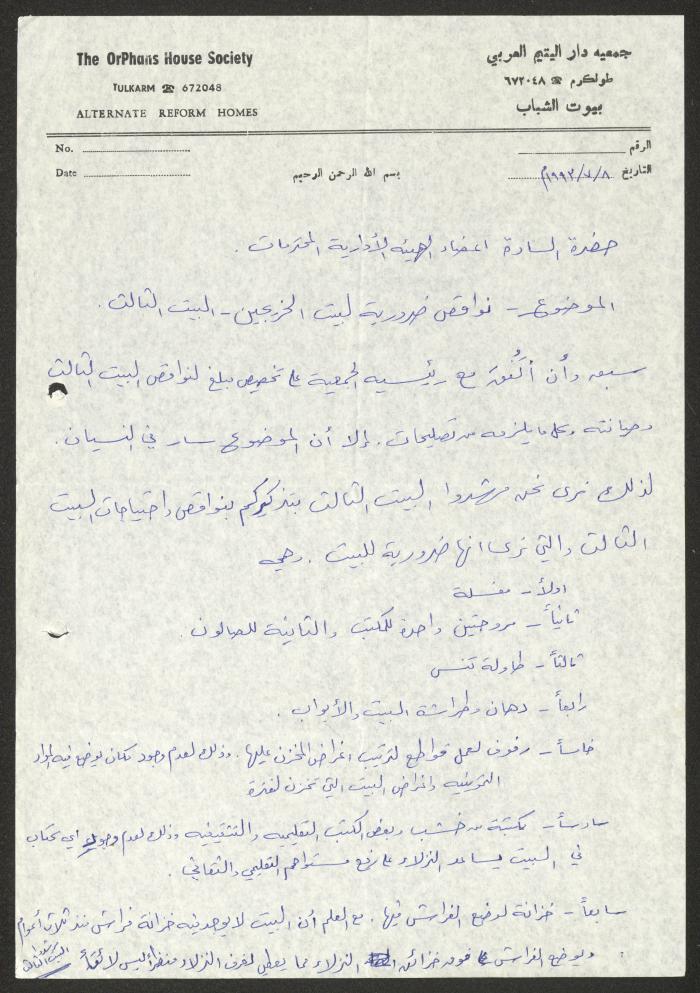 The OrPhans House Society
جمعيه دار اليتيم العربي
TULKARM ☎ 672048
طولكرم ☎ ٦٧٢٠٤٨
ALTERNATE REFORM HOMES
بيوت الشباب
No.
الرقم
Date
بسم الله الرحمن الرحيم
التاريخ ١٩٩٢/٧/٨م
حضرة السادة اعضاء الهيئه الأدارية المحترمات .
الموضوع - نواقص ضرورية لبيت الخريجين - البيت الثالث .
سبق وأن أتُفق مع رئيسيه الجمعية على تخصيص مبلغ لنواقص البيت الثالث
وصيانته وعمل ما يلزمه من تصليحات . إلا أن الموضوع سار في النسيان .
لذلك نرى نحن مرشدوا البيت الثالث بتذكيركم بنواقص واحتياجات البيت
الثالث والتي نرى انها ضرورية للبيت . وهي
اولاً - مغسلة
ثانياً - مروحتين واحدة للمكتب والثانية للصالون .
ثالثاً - طاولة تنس
رابعاً - دهان وطراشة البيت والأبواب .
خامساً - رفوف لعمل قواطع لترتيب اغراض المخزن عليها . وذلك لعدم وجود مكان يوضع فيه المواد
التموينيه واغراض البيت التي تخزن لفترة
سادساً - مكتبة من خشب وبعض الكتب التعليميه والتثقيفيه وذلك لعدم وجود اي كتاب
في البيت يساعد النزلاء على رفع مستواهم التعليمي والثقافي .
سابعاً - خزانة لوضع الفراش فيها . مع العلم أن البيت لا يوجد فيه خزانة فراش منذ ثلاث أعوام
ويوضع الفراش فوق خزائن النزلاء مما يعطي لغرف النزلاء منظراً ليس لائقاً
البيت الثالث